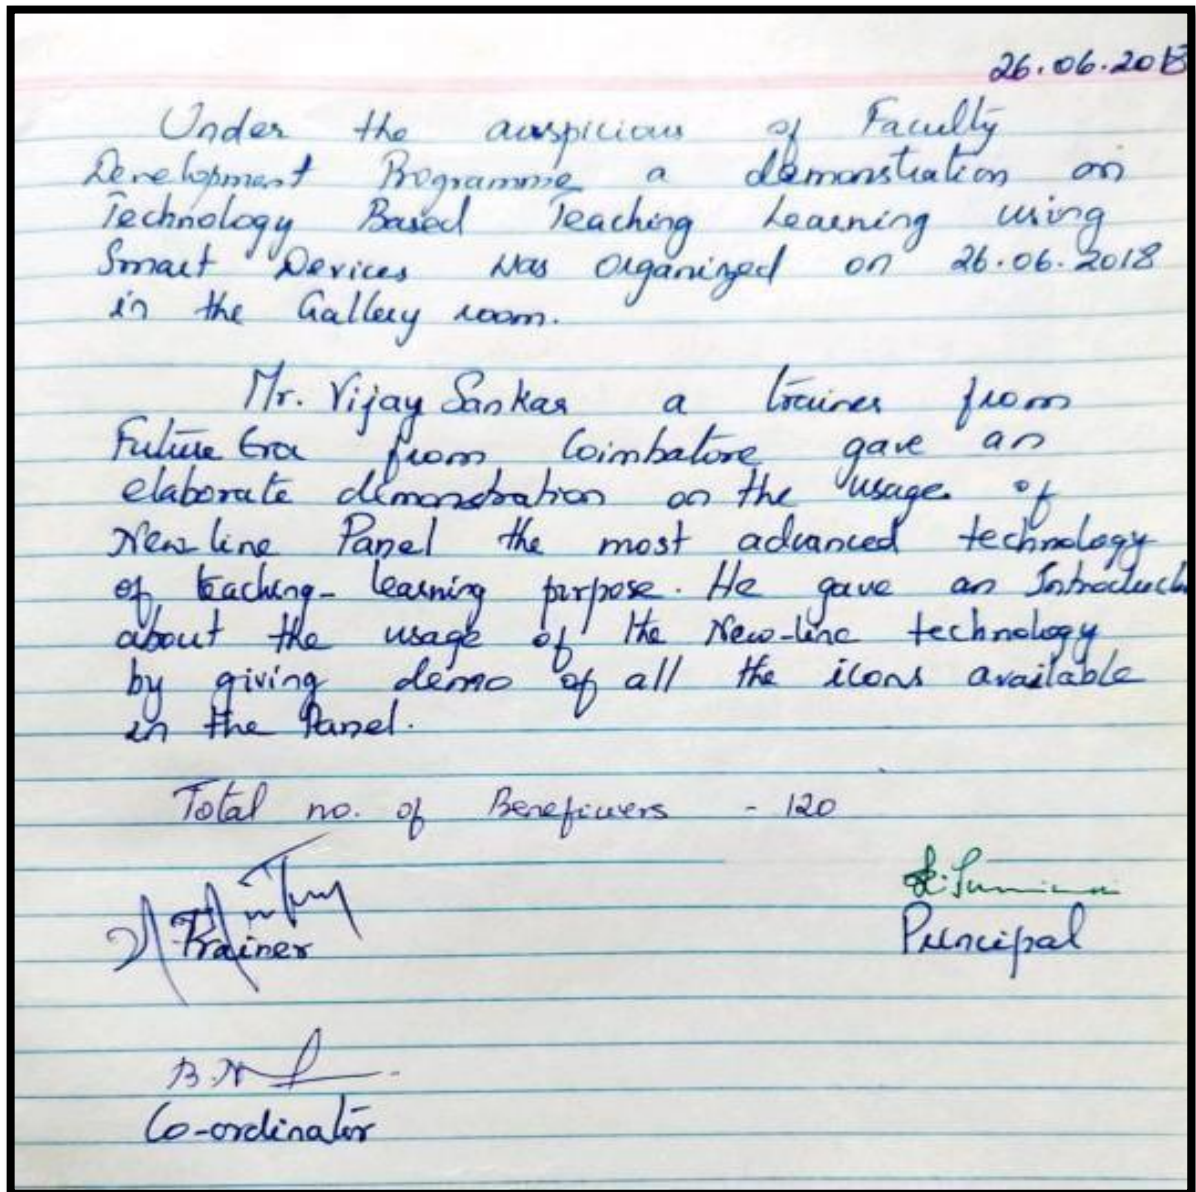 26.06.2018
Under the auspicious of Faculty
Development Programme a demonstration on
Technology Based Teaching Learning using
Smart Devices was organized on 26.06.2018
in the Gallery room.
Mr. Vijay Sankar a trainer from
Future Era from Coimbatore gave an
elaborate demonstration on the usage of
New line Panel the most advanced technology
of teaching-learning purpose. He gave an Introduc
about the usage of the New-line technology
by giving demo of all the icons available
in the Panel.
Total no. of Beneficiers - 120
Trainer
Principal
Co-ordinator